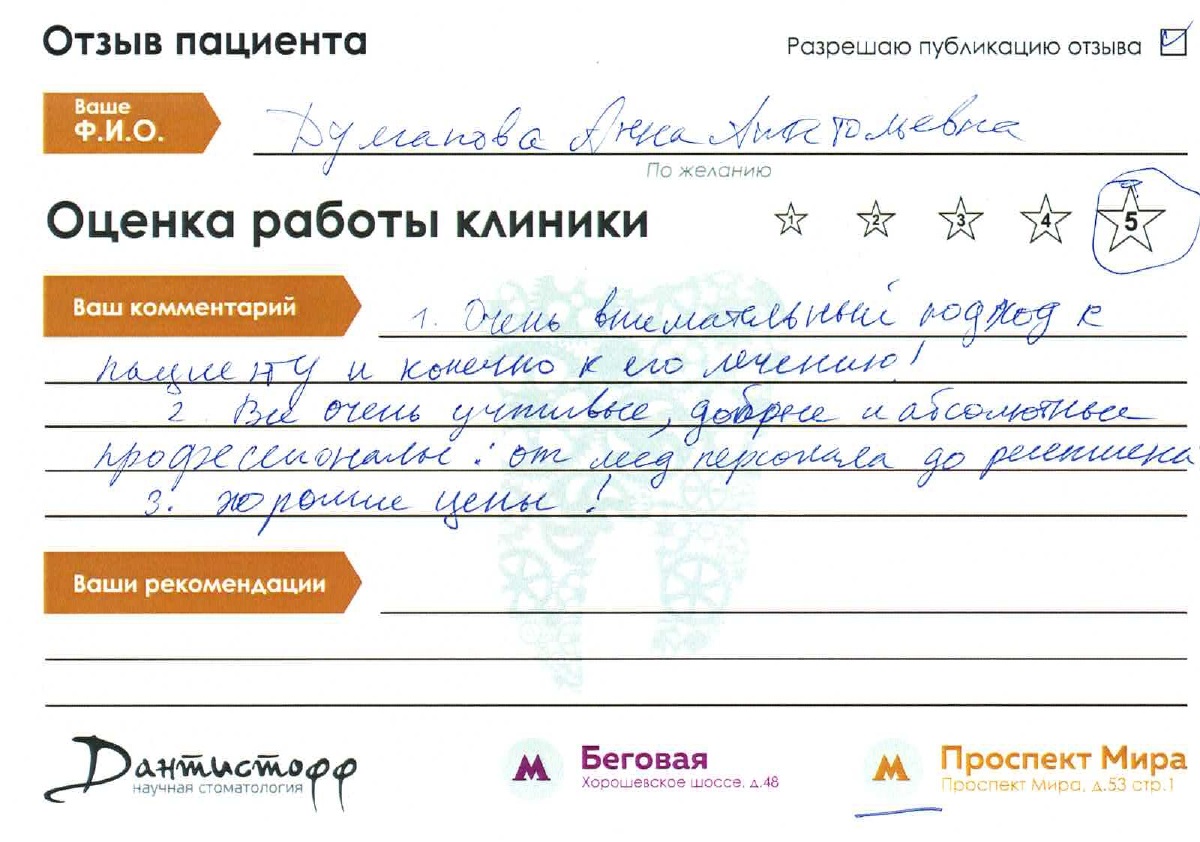 Отзыв пациента
Разрешаю публикацию отзыва
Ваше
Ф.И.О.
Думанова Анна Анатольевна
По желанию
Оценка работы клиники
1 2 3 4 5
Ваш комментарий
1. Очень внимательный подход к
пациенту и конечно к его лечению!
2. Все очень учтивые, добрые и абсолютные
профессионалы: от мед персонала до ресепшена
3. хорошие цены!
Ваши рекомендации
Дантистофф
научная стоматология
М Беговая
Хорошевское шоссе, д.48
М Проспект Мира
Проспект Мира, д.53 стр.1